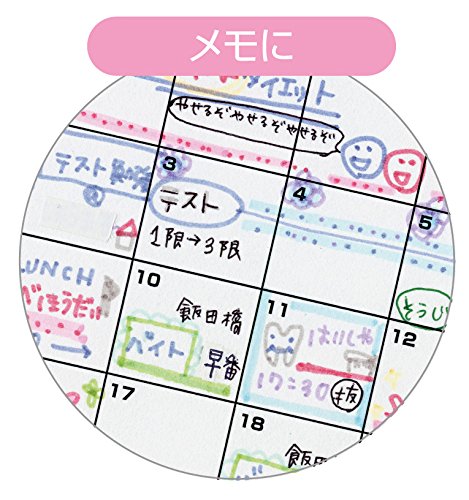 メモに
イエット
やせるぞやせるぞやせるぞ
テスト勉強
3
テスト
1限→3限
4
5
そうじ
LUNCH
べほうだい
10
飯田橋
バイト
早番
11
はいしゃ
17:30
抜
12
17
18
飯田